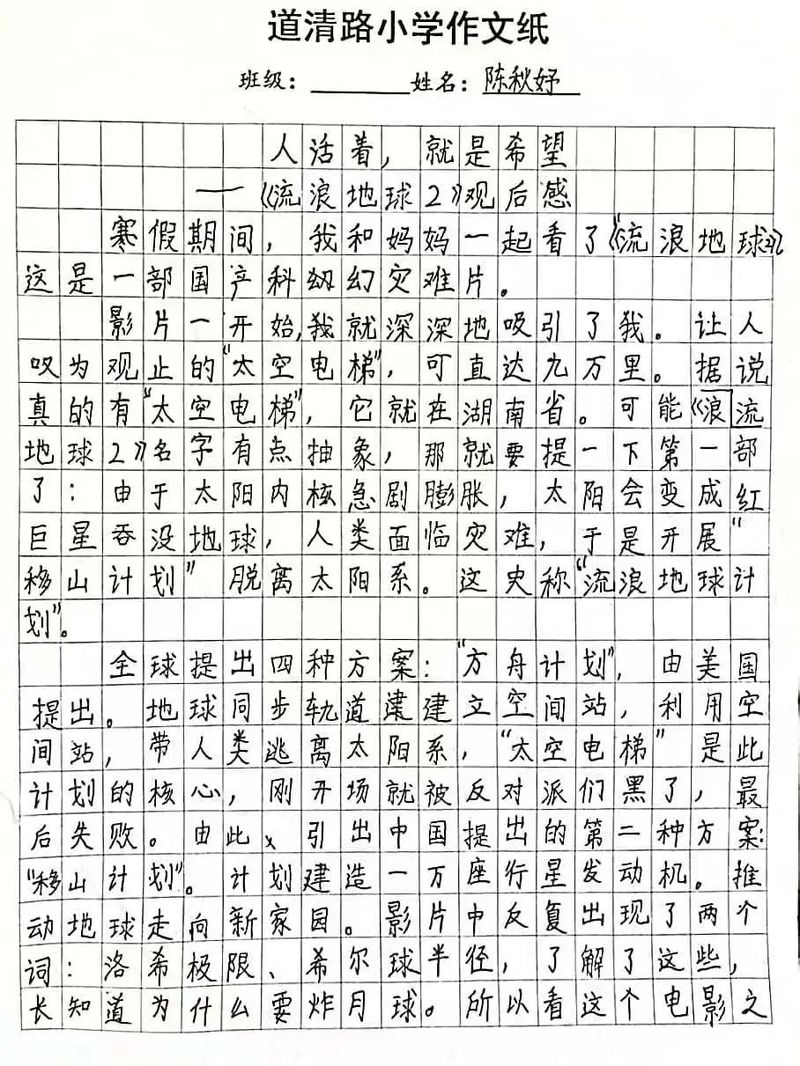 道清路小学作文纸
班级：______ 姓名：陈秋妤
人活着，就是希望
——《流浪地球2》观后感
寒假期间，我和妈妈一起看了《流浪地球2》
这是一部国产科幻灾难片。
影片一开始，我就深深地吸引了我。让人
叹为观止的“太空电梯”，可直达九万里。据说
真的有“太空电梯”，它就在湖南省。可能《浪流
地球2》名字有点抽象，那就要提一下第一部
了：由于太阳内核急剧膨胀，太阳会变成红
巨星吞没地球，人类面临灾难，于是开展“
移山计划”脱离太阳系。这史称“流浪地球计
划”。
全球提出四种方案：“方舟计划”，由美国
提出。地球同步轨道建建立空间站，利用空
间站，带人类逃离太阳系，“太空电梯”是此
计划的核心，刚开场就被反对派们黑了，最
后失败。由此，引出中国提出的第二种方案：
“移山计划”。计划建造一万座行星发动机。推
动地球走向新家园。影片中反复出现了两个
词：洛希极限、希尔球半径，了解了这些，
长知道为什么要炸月球。所以看这个电影之